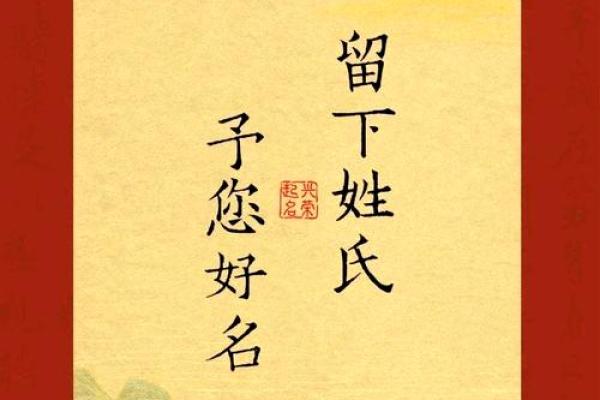 留下姓氏
予您好名
兴荣
起名